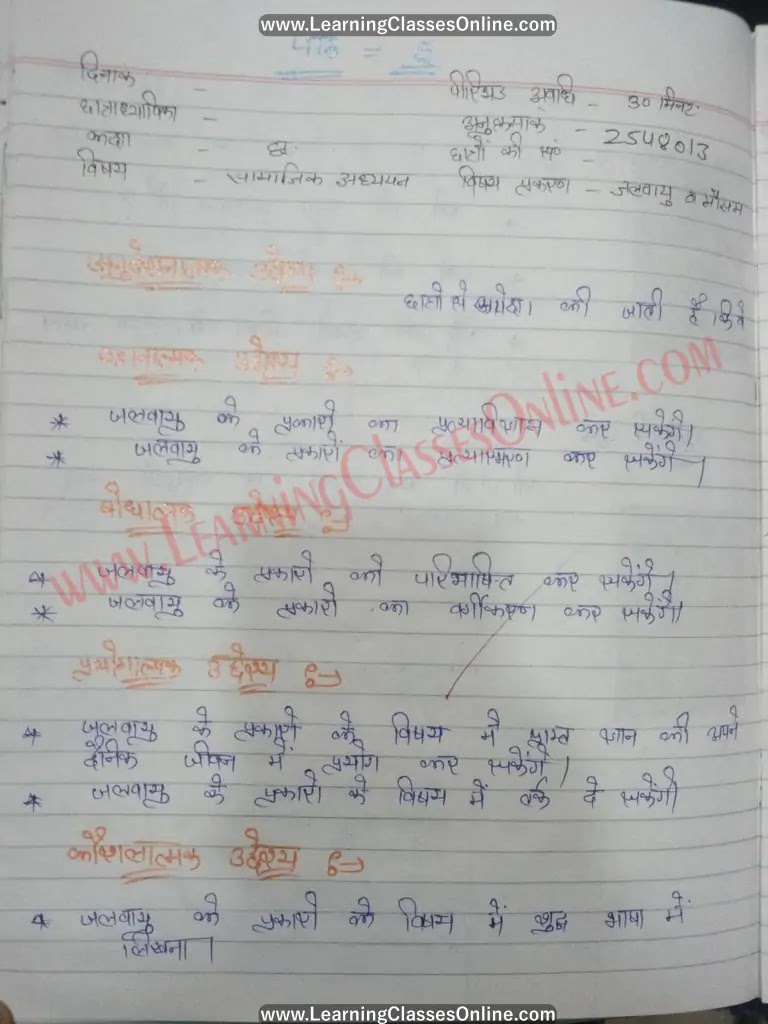 www.LearningClassesOnline.com
पाठ = ६
दिनांक -
पीरियड अवधि - 30 मिनट
छात्राध्यापिका -
अनुक्रमांक - 2548013
कक्षा -
छात्रों की सं० -
विषय - सामाजिक अध्ययन
विषय प्रकरण - जलवायु व मौसम
अनुदेशनात्मक उद्देश्य :-
छात्रों से अपेक्षा की जाती है कि वे
ज्ञानात्मक उद्देश्य :-
* जलवायु के प्रकारों का प्रत्याभिज्ञान कर सकेंगे।
* जलवायु के प्रकारों का प्रत्यास्मरण कर सकेंगे।
बोधात्मक उद्देश्य :-
* जलवायु के प्रकारो को परिभाषित कर सकेंगे।
* जलवायु के प्रकारो का वर्गीकरण कर सकेंगे।
प्रयोगात्मक उद्देश्य :-
* जलवायु के प्रकारो के विषय में प्राप्त ज्ञान को अपने
दैनिक जीवन में प्रयोग कर सकेंगे।
* जलवायु के प्रकारो के विषय में तर्क दे सकेंगे।
कौशलात्मक उद्देश्य :-
* जलवायु के प्रकारो के विषय में शुद्ध भाषा में
लिखना।
www.LearningClassesOnline.com
www.LearningClassesOnline.com